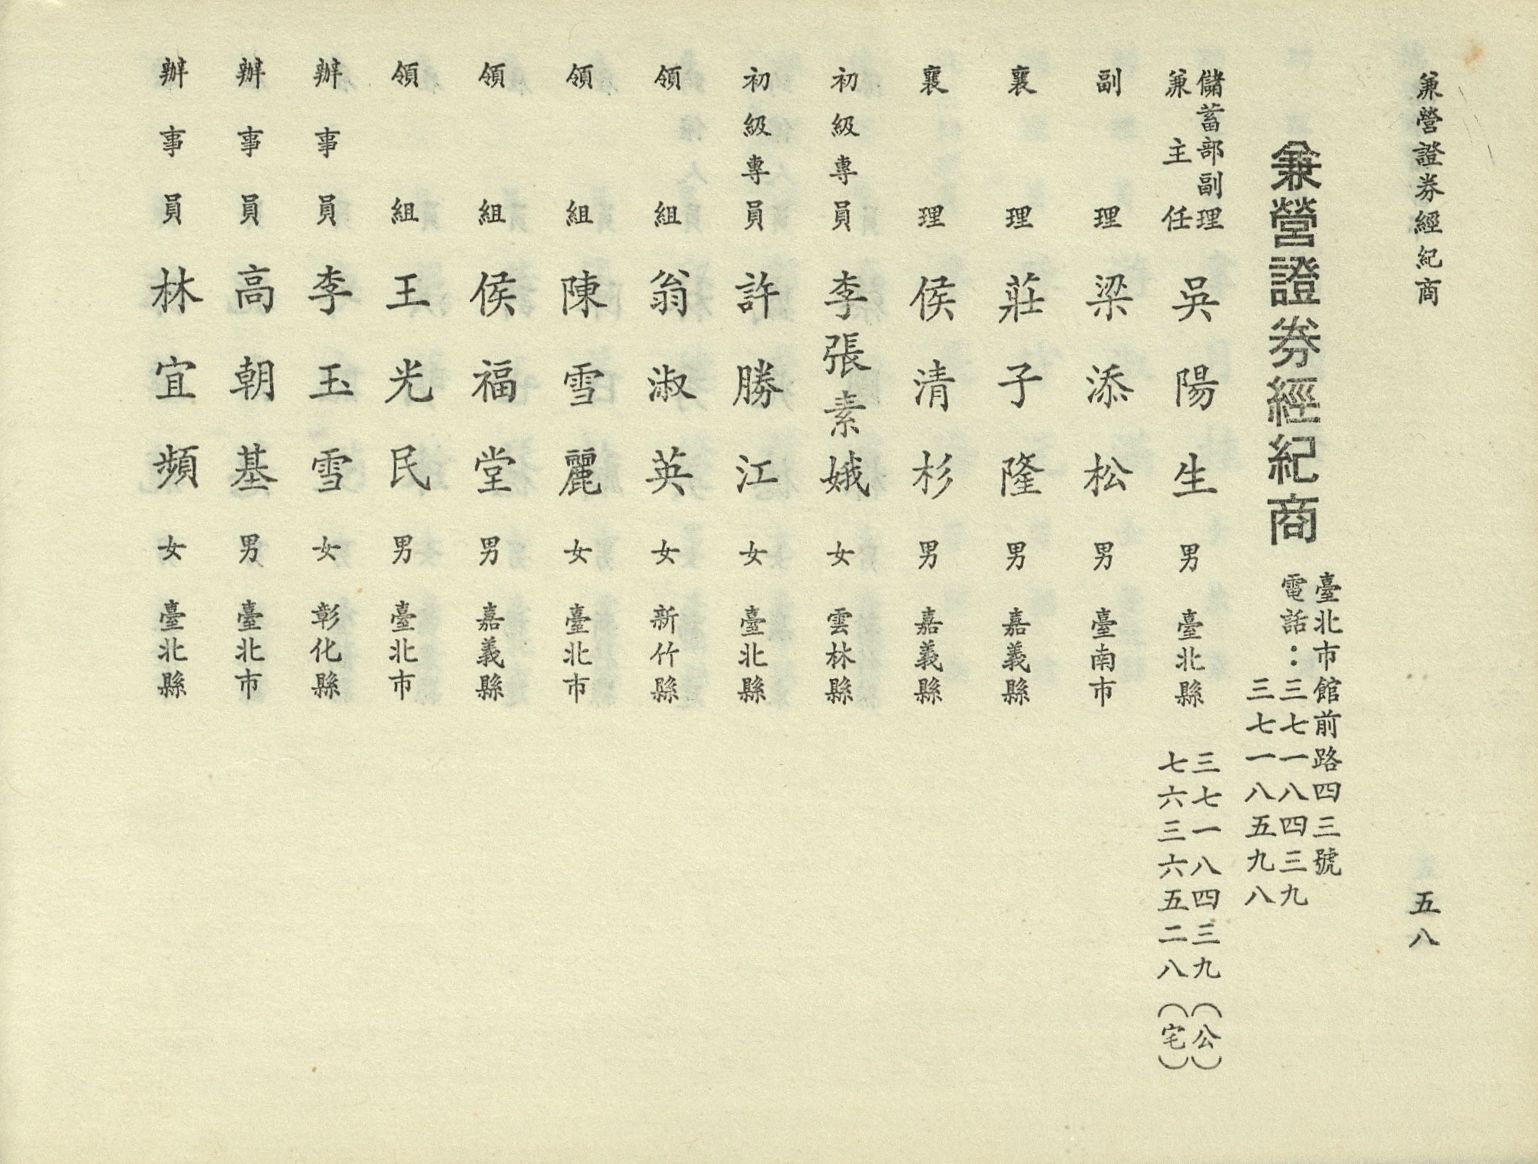 兼營證券經紀商
五八
兼營證券經紀商
臺北市館前路四三號
電話：三七一八四三九
三七一八五九八
儲蓄部副理
兼主任
吳陽生 男 臺北縣
三七一八四三九（公）
七六三六五二八（宅）
副理 梁添松 男 臺南市
襄理 莊子隆 男 嘉義縣
襄理 侯清杉 男 嘉義縣
初級專員 李張素娥 女 雲林縣
初級專員 許勝江 女 臺北縣
領組 翁淑英 女 新竹縣
領組 陳雪麗 女 臺北市
領組 侯福堂 男 嘉義縣
領組 王光民 男 臺北市
辦事員 李玉雪 女 彰化縣
辦事員 高朝基 男 臺北市
辦事員 林宜頻 女 臺北縣